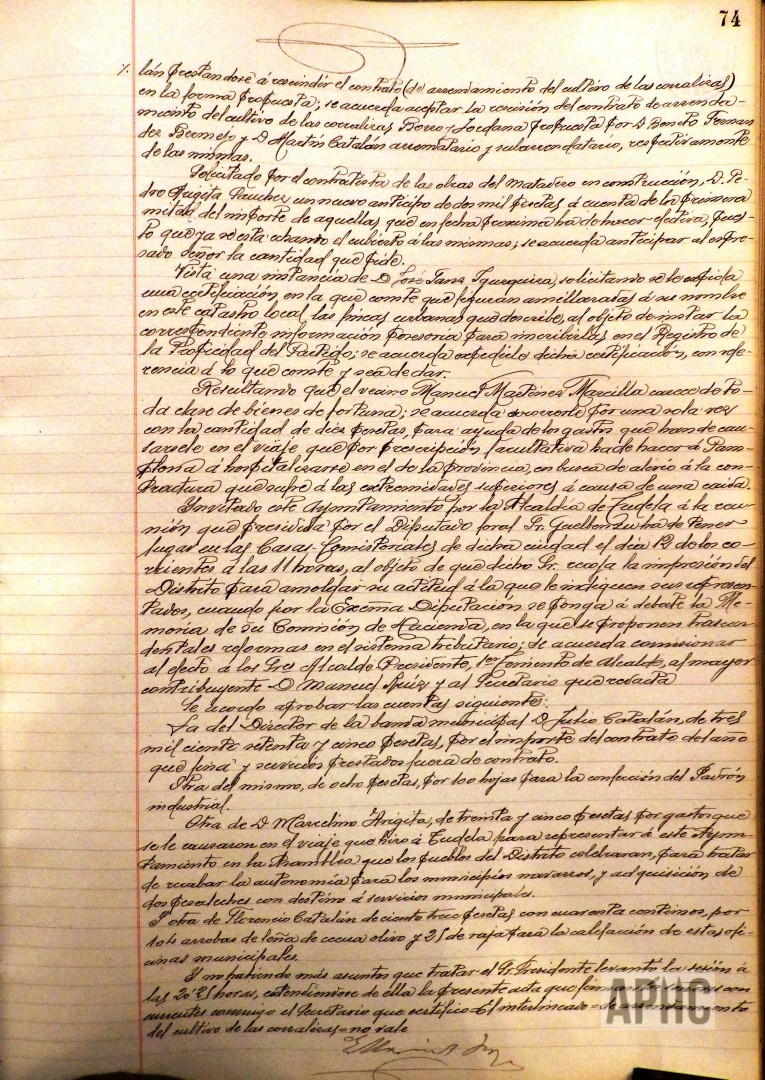 74
/. lán prestandose á rescindir el contrato (de arrendamiento del cultivo de las corralizas)
en la forma propuesta; se acuerda aceptar la rescisión del contrato de arrenda-
miento del cultivo de las corralizas Berro y Jordana propuesta por D. Benito Fernan
dez Bermejo y D. Martín Catalán arrendatario y subarrendatario, respectivamente
de las mismas.
Solicitado por el contratista de las obras del Matadero en construcción, D. Pe-
dro Angita Sanchez un nuevo anticipo de dos mil pesetas á cuenta de la primera
mitad del importe de aquellas que en fecha proxima ha de hacer efectiva, pues-
to que ya se esta echando el cubierto á las mismas; se acuerda anticipar al expre-
sado Señor la cantidad que pide.
Vista una instancia de D. José Sanz solicitando se le expida
una certificación en la que conste que figuran amillaradas á su nombre
en este catastro local las fincas urbanas que describe, al objeto de instar la
correspondiente información posesoria para inscribirlas en el Registro de
la Propiedad del Partido; se acuerda expedirle dicha certificación, con refe-
rencia á lo que conste y sea de dar.
Resultando que el vecino Manuel Martínez Marcilla carece de to-
da clase de bienes de fortuna; se acuerda socorrerle por una sola vez
con la cantidad de diez pesetas, para ayuda de los gastos que han de cau-
sarsele en el viaje que por prescripción facultativa ha de hacer á Pam-
plona á hospitalizarse en el de la provincia, en busca de alivio á la con-
tractura que sufre á las extremidades superiores á causa de una caida.
Invitado este Ayuntamiento por la Alcaldía de Tudela á la reu-
nión que presidida por el Diputado foral Sr. Guelbenzu ha de tener
lugar en las Casas-Consistoriales de dicha ciudad el día 12 de los co-
rrientes á las 11 horas, al objeto de que dicho Sr. recoja la impresión del
Distrito para amoldar su actitud á la que le indiquen sus represen-
tados, cuando por la Excma Diputación se ponga á debate la Me-
moria de su Comisión de Hacienda, en la que se proponen trascen-
dentales reformas en el sistema tributario; se acuerda comisionar
al efecto á los Sres Alcalde Presidente, 1er Teniente de Alcalde, al mayor
contribuyente D. Manuel Ruiz y al Secretario que redacta
Se acordo aprobar las cuentas siguientes:
La del Director de la banda municipal D. Julio Catalán, de tres
mil ciento setenta y cinco pesetas, por el importe del contrato del año
que fina y servicios prestados fuera de contrato.
Otra del mismo, de ocho pesetas, por 100 hojas para la confección del Padrón
industrial.
Otra de D. Marcelino Angita, de treinta y cinco pesetas por gastos que
se le causaron en el viaje que hizo á Tudela para representar á este Ayun-
tamiento en la Asamblea que los pueblos del Distrito celebraran, para tratar
de recabar la autonomía para los municipios navarros, y adquisición de
dos con destino á servicios municipales.
Y otra de Florencio Catalán de ciento trece pesetas con cuarenta centimos, por
104 arrobas de leña de olivo y 25 de raja para la calefacción de estas ofi-
cinas municipales.
Y no habiendo más asuntos que tratar el Sr. Presidente levantó la sesión á
las 20'25 horas, extendiendose de ella la presente acta que firman los señores con
currentes conmigo el Secretario que certifico = El interlineado = de arrendamiento
del cultivo de las corralizas = no vale
APHC